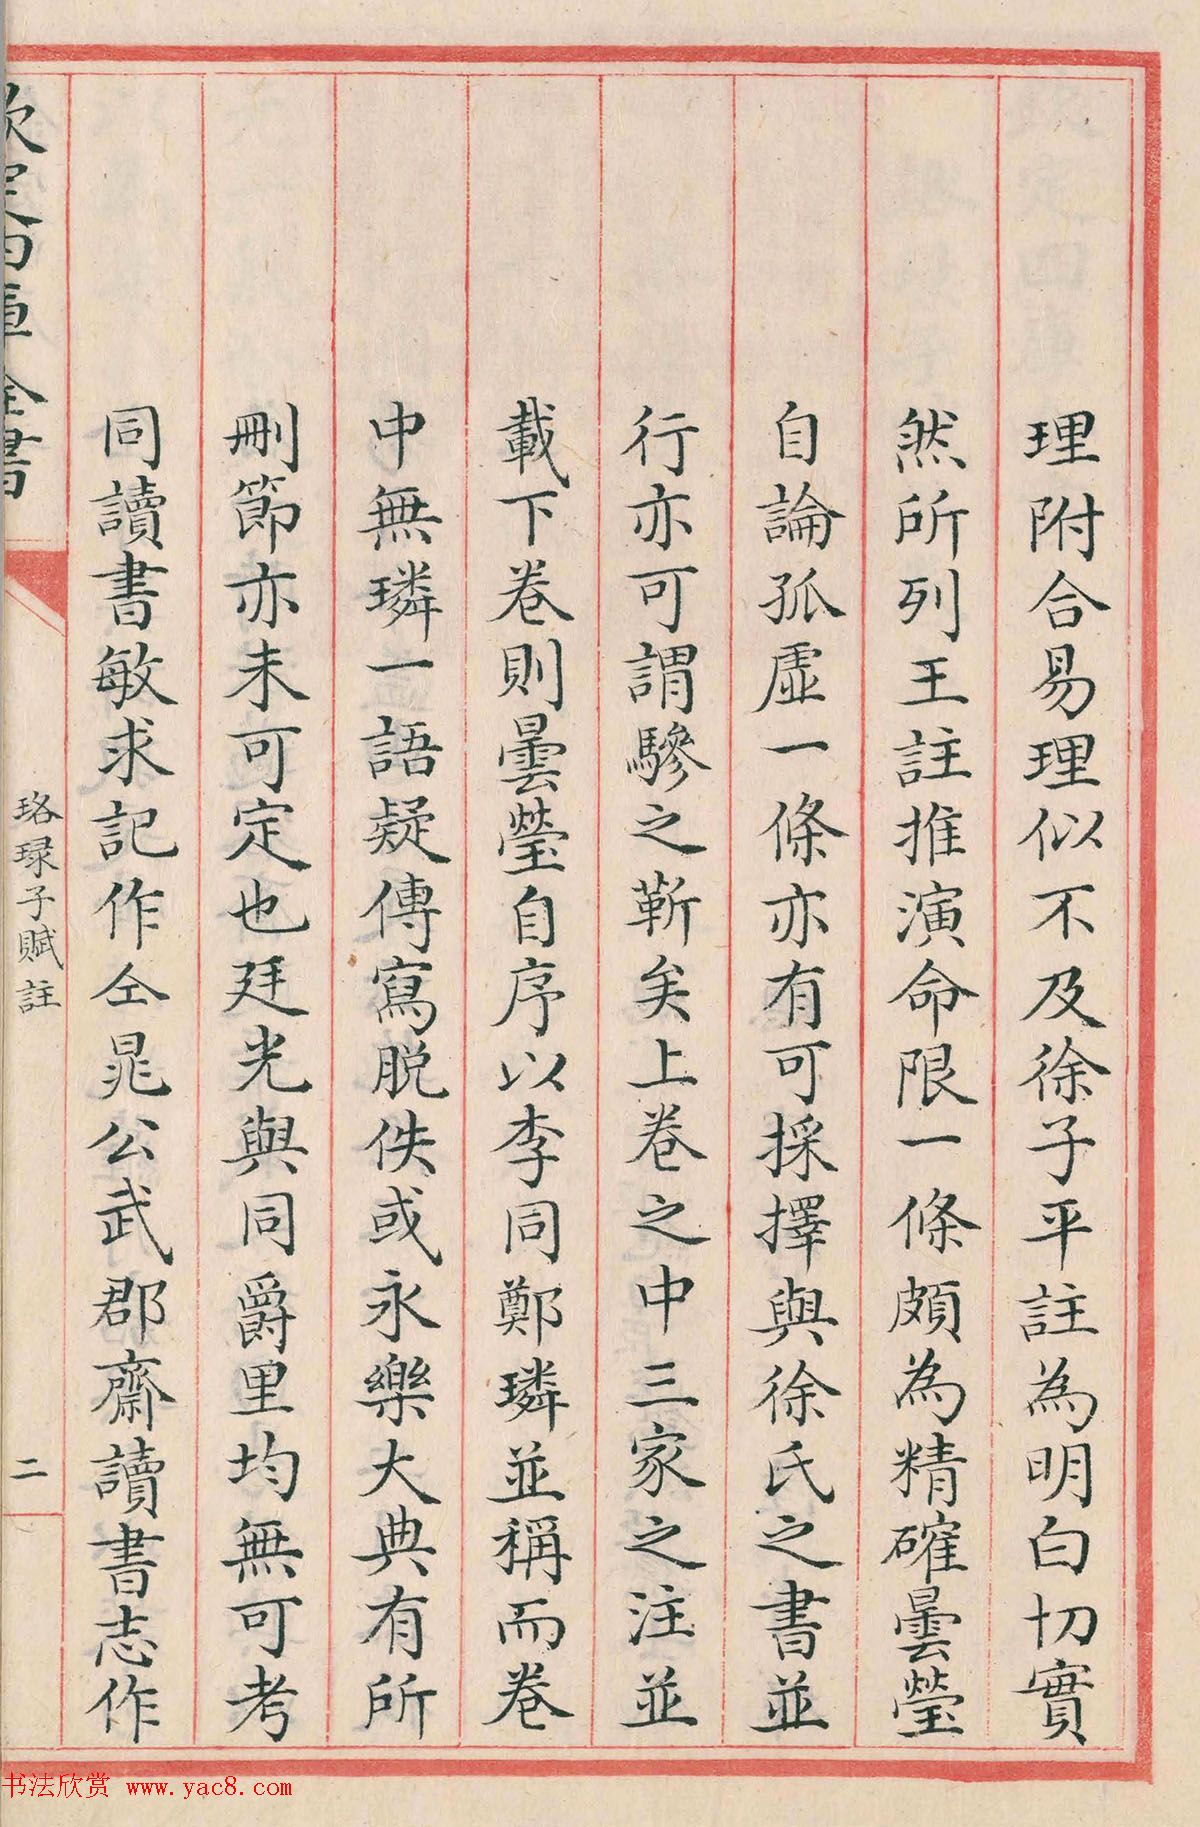 理附合易理似不及徐子平註為明白切實
然所列王註推演命限一條頗為精確曇瑩
自論孤虛一條亦有可採擇與徐氏之書並
行亦可謂驂之靳矣上卷之中三家之注並
載下卷則曇瑩自序以李同鄭璘並稱而卷
中無璘一語疑傳寫脱佚或永樂大典有所
刪節亦未可定也廷光與同爵里均無可考
同讀書敏求記作仝晁公武郡齋讀書志作
欽定四庫全書
珞琭子賦註
二
书法欣赏 www.yac8.com